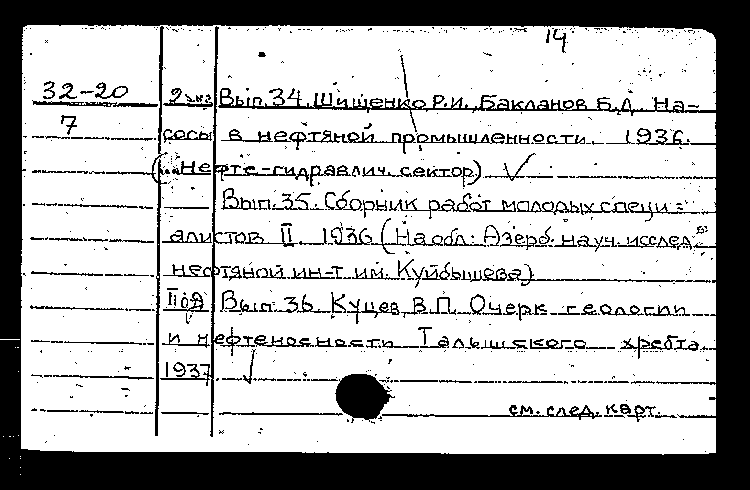 14
32-20 2 экз Вып. 34. Шищенко Р.И., Бакланов Б.Д. На-
7 сосы в нефтяной промышленности. 1936.
(Нефте-гидравлич. сектор) ✓
Вып. 35. Сборник работ молодых специ=
алистов II. 1936 (На обл: Азерб. науч. исслед.
нефтяной ин-т им. Куйбышева)
Под Вып. 36. Куцев, В.П. Очерк геологии
и нефтеносности Талышского хребта.
1937 ✓
см. след. карт.